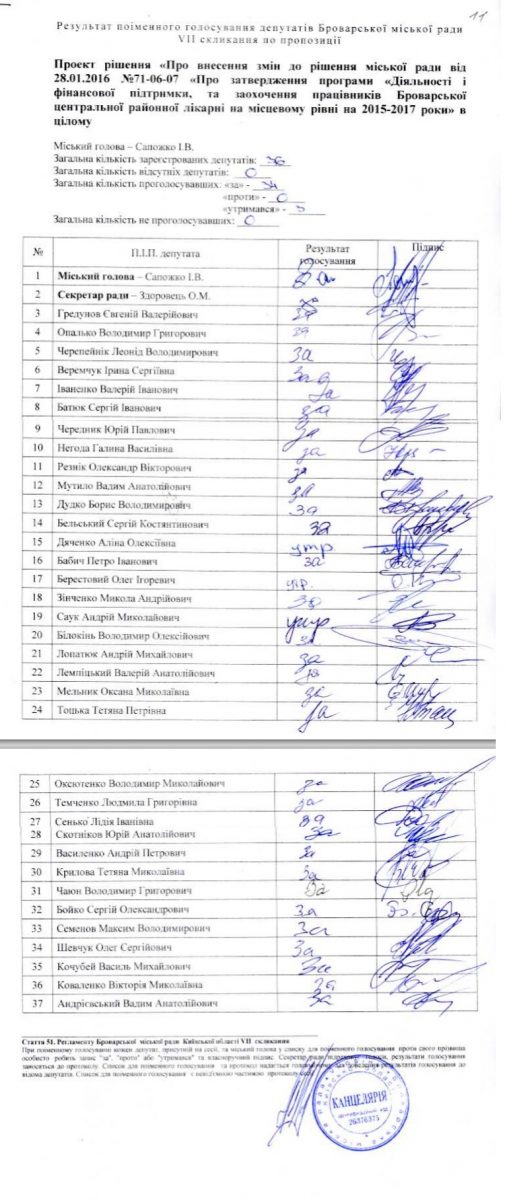 11
Результат поіменного голосування депутатів Броварської міської ради
VII скликання по пропозиції
Проект рішення «Про внесення змін до рішення міської ради від
28.01.2016 №71-06-07 «Про затвердження програми «Діяльності і
фінансової підтримки, та заохочення працівників Броварської
центральної районної лікарні на місцевому рівні на 2015-2017 роки» в
цілому
Міський голова – Сапожко І.В.
Загальна кількість зареєстрованих депутатів:
Загальна кількість відсутніх депутатів: 0
Загальна кількість проголосувавших: «за» - 34
«проти» - 0
«утримався» - 3
Загальна кількість не проголосувавших: 0
№ П.І.П. депутата Результат голосування Підпис
1 Міський голова – Сапожко І.В. за
2 Секретар ради – Здоровець О.М.
3 Гредунов Євгеній Валерійович за
4 Опалько Володимир Григорович за
5 Черепейнік Леонід Володимирович за
6 Веремчук Ірина Сергіївна за
7 Іваненко Валерій Іванович за
8 Батюк Сергій Іванович за
9 Чередник Юрій Павлович за
10 Негода Галина Василівна за
11 Резнік Олександр Вікторович за
12 Мутило Вадим Анатолійович за
13 Дудко Борис Володимирович за
14 Бельський Сергій Костянтинович за
15 Дяченко Аліна Олексіївна утр
16 Бабич Петро Іванович за
17 Берестовий Олег Ігоревич утр.
18 Зінченко Микола Андрійович за
19 Саук Андрій Миколайович утр
20 Білокінь Володимир Олексійович за
21 Лопатюк Андрій Михайлович за
22 Лемпіцький Валерій Анатолійович за
23 Мельник Оксана Миколаївна за
24 Тоцька Тетяна Петрівна за
25 Оксютенко Володимир Миколайович за
26 Темченко Людмила Григорівна за
27 Сенько Лідія Іванівна за
28 Скотніков Юрій Анатолійович за
29 Василенко Андрій Петрович за
30 Крилова Тетяна Миколаївна за
31 Чаюн Володимир Григорович за
32 Бойко Сергій Олександрович за
33 Семенов Максим Володимирович за
34 Шевчук Олег Сергійович за
35 Кочубей Василь Михайлович за
36 Коваленко Вікторія Миколаївна за
37 Андрієвський Вадим Анатолійович за
Стаття 51. Регламенту Броварської міської ради Київської області VII скликання
При поіменному голосуванні кожен депутат, присутній на сесії, та міський голова у списку для поіменного голосування проти свого прізвища
особисто робить запис "за", "проти" або "утримався" та власноручний підпис. Секретар ради підраховує голоси, результати голосування
заносяться до протоколу. Список для поіменного голосування та протокол надається головуючому для доведення результатів голосування до
відома депутатів. Список для поіменного голосування є невід'ємною частиною протоколу сесії.
КАНЦЕЛЯРІЯ
26376375